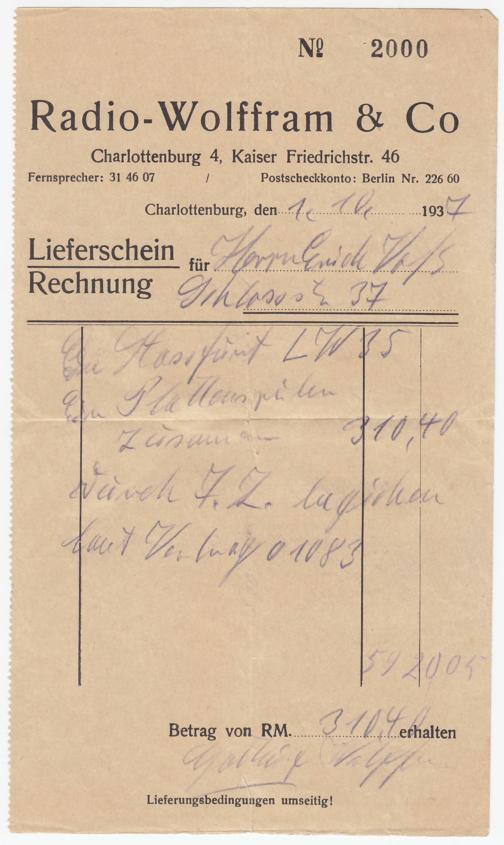 Nº 2000
Radio-Wolffram & Co
Charlottenburg 4, Kaiser Friedrichstr. 46
Fernsprecher: 31 46 07 / Postscheckkonto: Berlin Nr. 226 60
Charlottenburg, den 1. 10. 1937
Lieferschein
Rechnung
für Herrn Erich
Schlossstr. 37
Ein Stassfurt LW 35
Ein Plattenspieler
zusammen 310,40
durch T. Z.
laut Vertrag 01083
Betrag von RM. 310,40 erhalten
Lieferungsbedingungen umseitig!